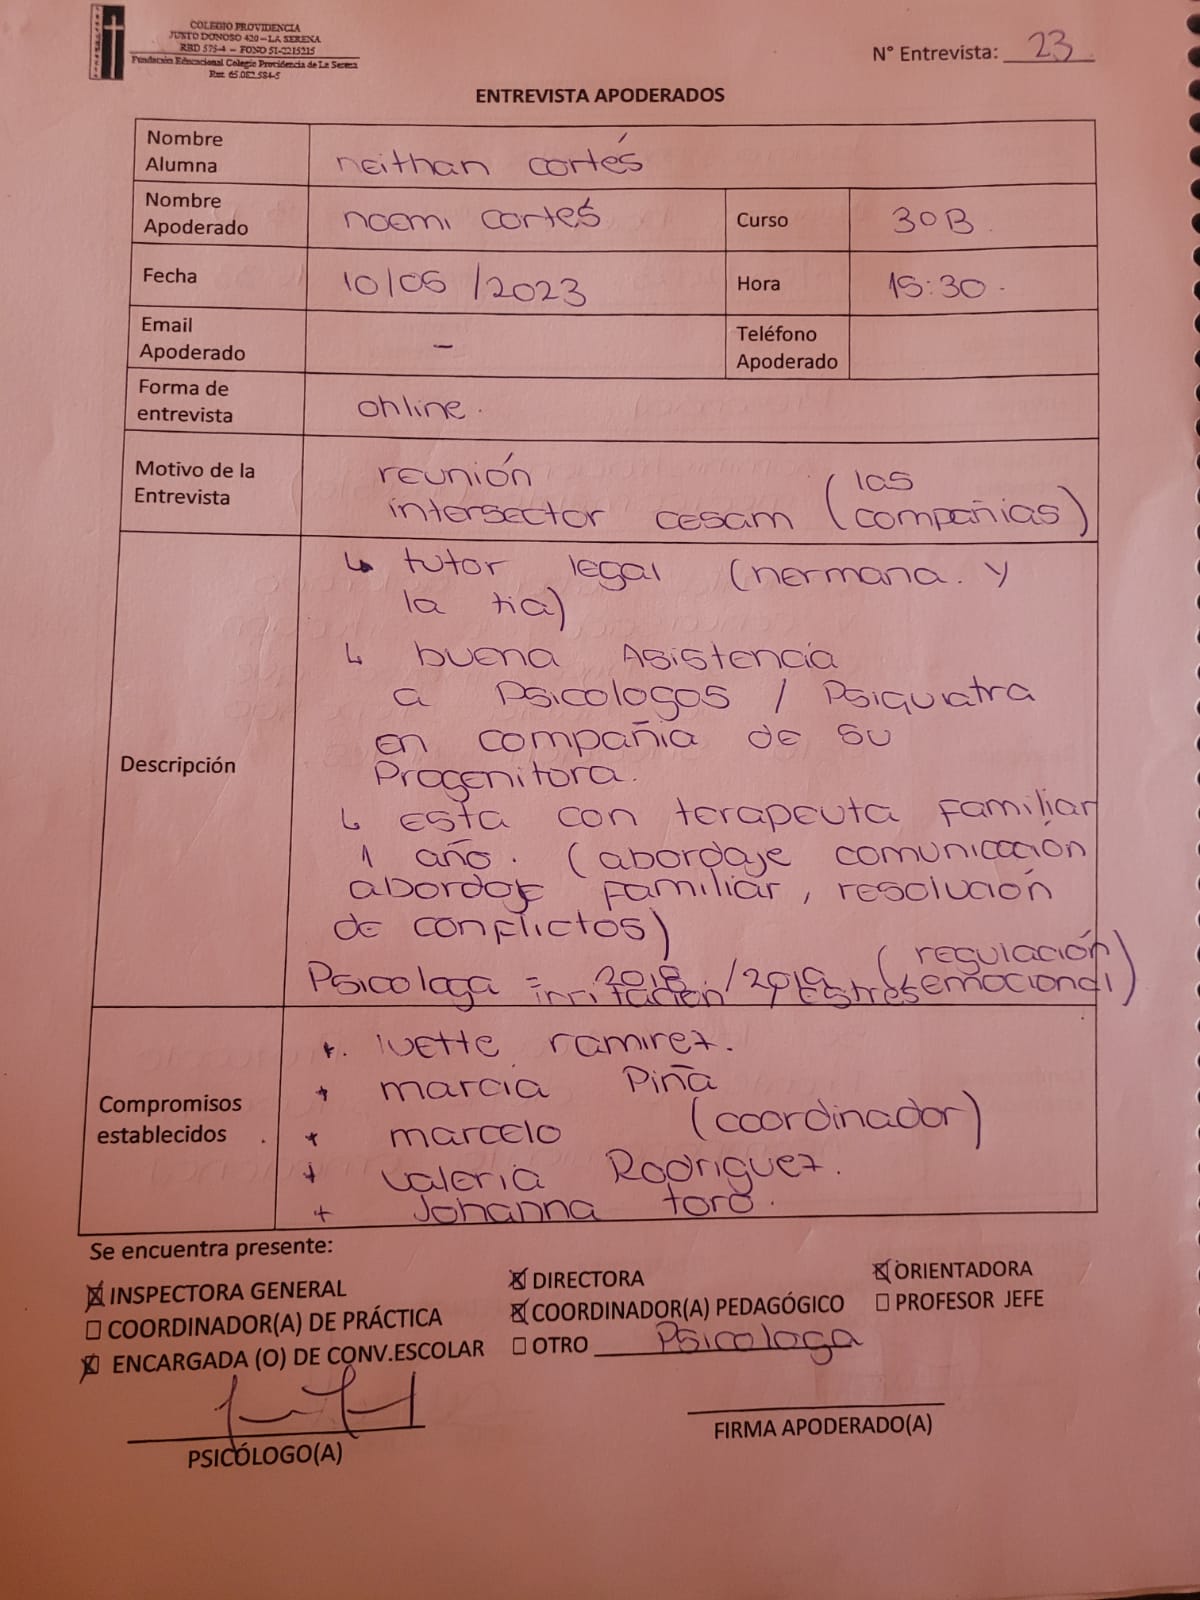 COLEGIO PROVIDENCIA
JUSTO DONOSO 420 – LA SERENA
RBD 575-4 – FONO 51-2215215
Fundación Educacional Colegio Providencia de La Serena
Rut. 65.082.584-5
N° Entrevista: 23
ENTREVISTA APODERADOS
Nombre Alumna
neithan cortés
Nombre Apoderado
noemi cortés
Curso
3ºB.
Fecha
10/05/2023
Hora
15:30.
Email Apoderado
-
Teléfono Apoderado
Forma de entrevista
online.
Motivo de la Entrevista
reunión
intersector cesam (las compañias)
Descripción
↳ tutor legal (hermana. y
la tia)
↳ buena Asistencia
a Psicologos / Psiquiatra
en compañia de su
Progenitora.
↳ esta con terapeuta familiar
1 año. (abordaje comunicación
abordaje familiar, resolución
de conflictos)
Psicologa = 2018 /2019 (regulación
irritación / Estrés emocional)
Compromisos establecidos
*. ivette ramirez.
* marcia Piña
* marcelo (coordinador)
* valeria Rodriguez.
* Johanna toro.
Se encuentra presente:
☒ INSPECTORA GENERAL
☒ DIRECTORA
☒ ORIENTADORA
☐ COORDINADOR(A) DE PRÁCTICA
☒ COORDINADOR(A) PEDAGÓGICO
☐ PROFESOR JEFE
☒ ENCARGADA (O) DE CONV.ESCOLAR
☐ OTRO Psicologa
PSICÓLOGO(A)
FIRMA APODERADO(A)